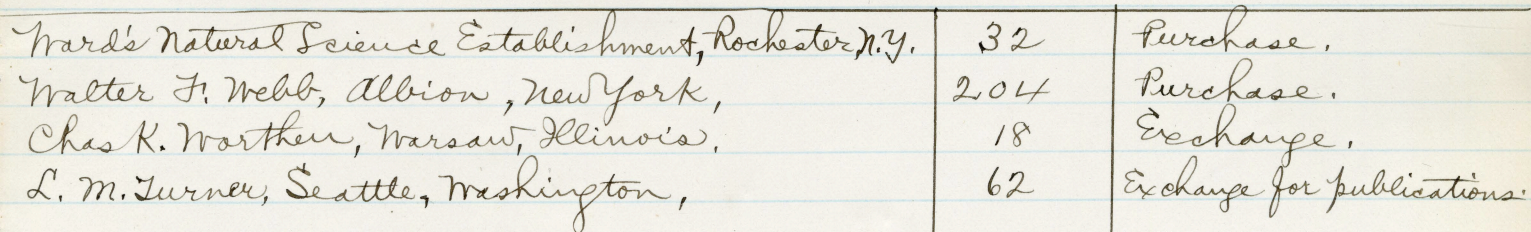 Ward's Natural Science Establishment, Rochester, N.Y. 32 Purchase.
Walter F. Webb, Albion, New York, 204 Purchase.
Chas K. Worthen, Warsaw, Illinois, 18 Exchange.
L. M. Turner, Seattle, Washington, 62 Exchange for publications.